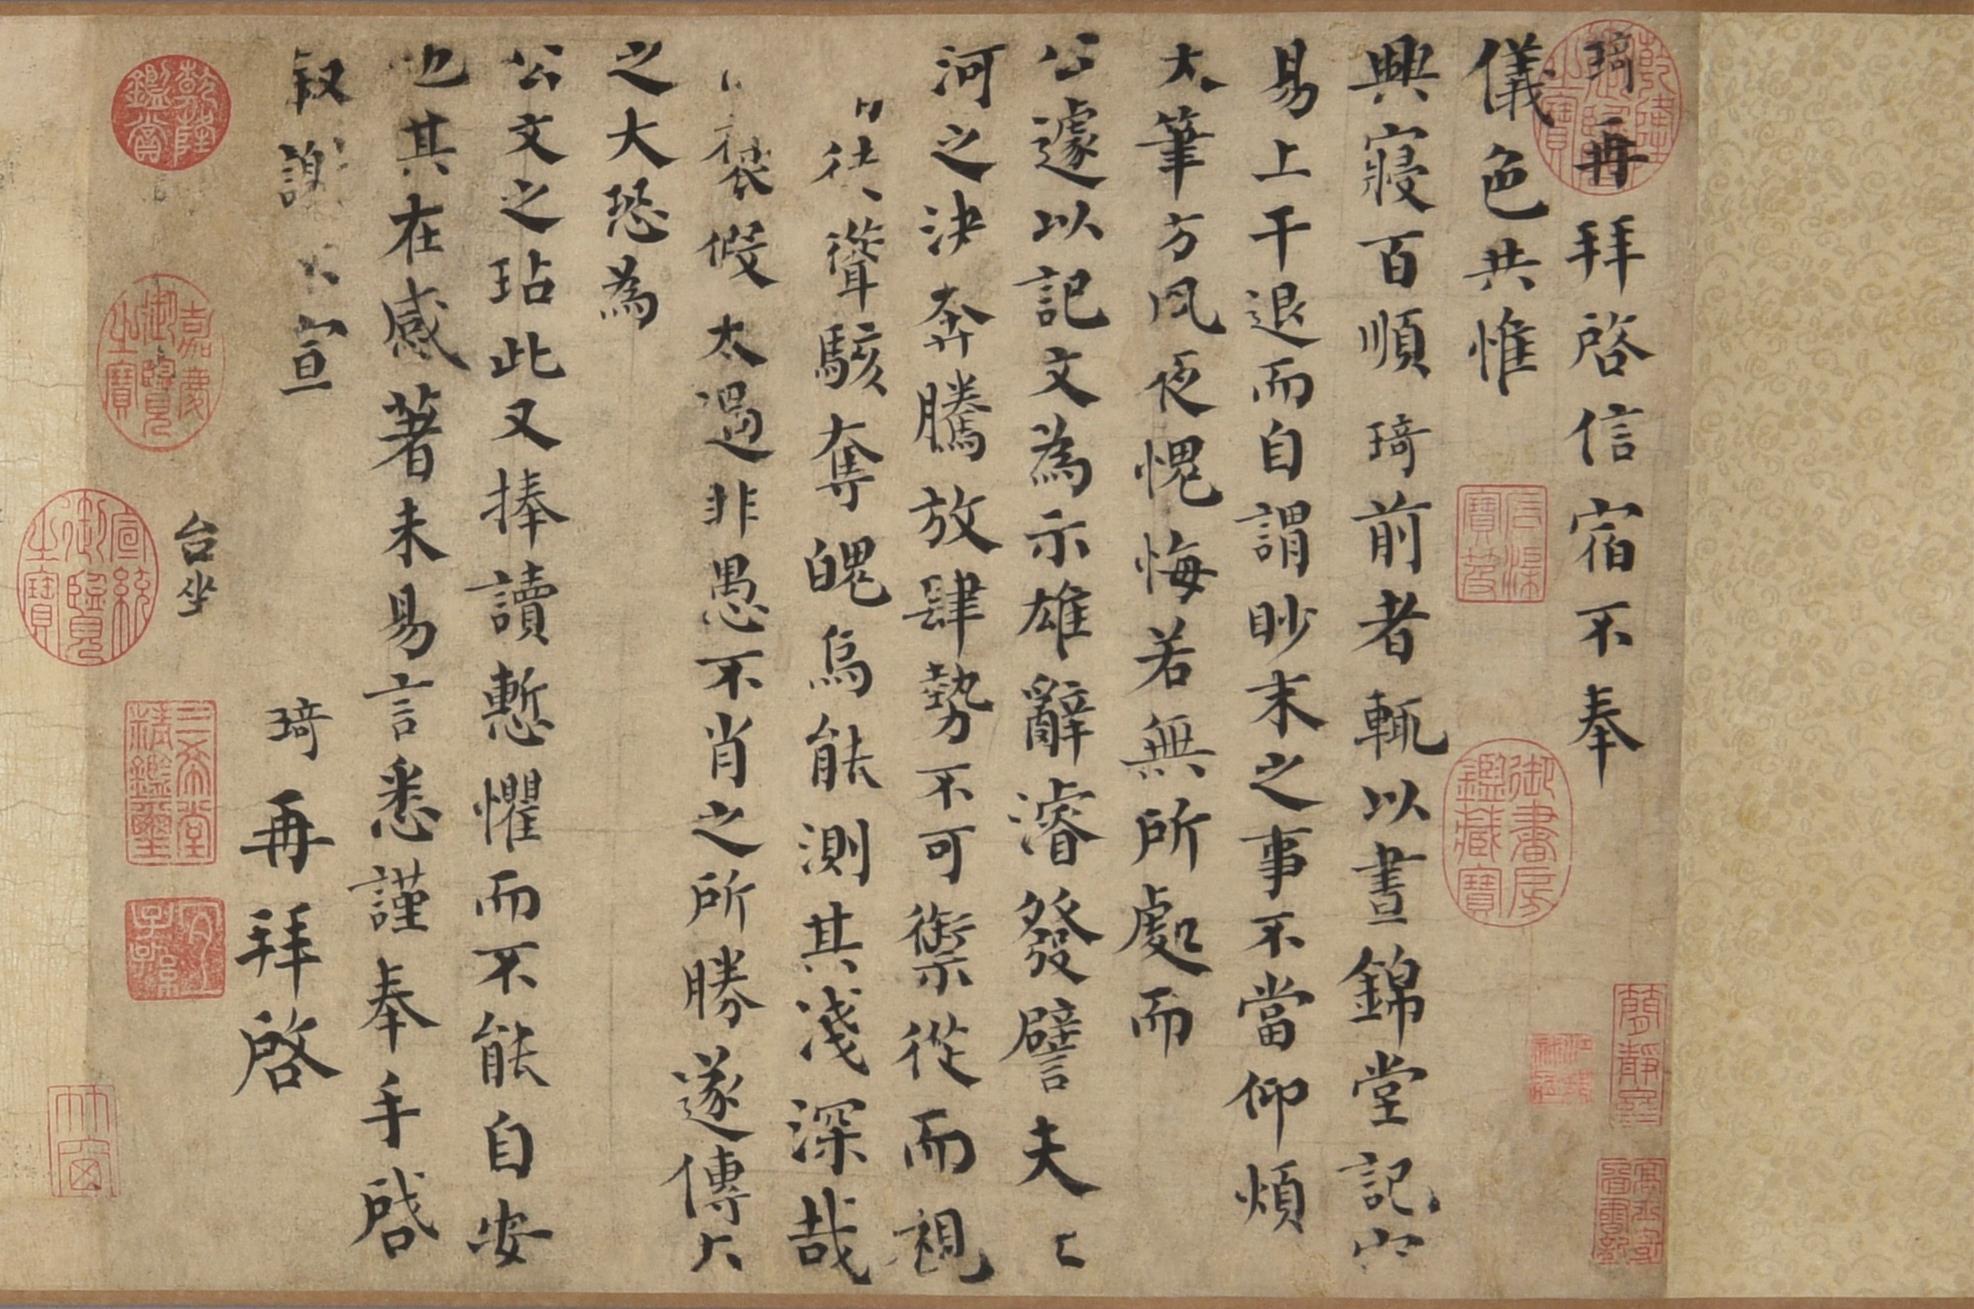 琦再拜啓信宿不奉
儀色共惟
興寢百順琦前者輒以晝錦堂記
易上干退而自謂眇末之事不當仰煩
大筆方夙夜愧悔若無所處而
公遽以記文為示雄辭濬發譬夫
河之決奔騰放肆勢不可禦從而視
聳駭奪魄烏能測其淺深哉
假太過非愚不肖之所勝遂傳
之大恐為
公文之玷此又捧讀慙懼而不能自安
也其在感著未易言悉謹奉手啓
叙謝宣
琦再拜啓
台坐
乾隆御覽之寶
御書房鑑藏寶
乾隆鑑賞
嘉慶御覽之寶
三希堂精鑑璽
宜子孫
宣統御覽之寶